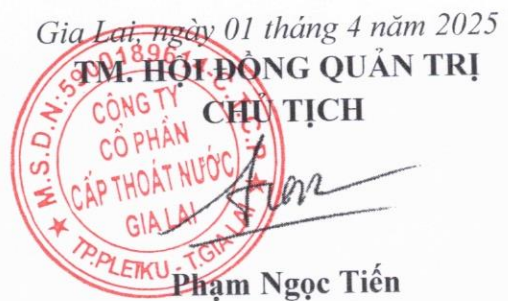 Gia Lai, ngày 01 tháng 4 năm 2025
TM. HỘI ĐỒNG QUẢN TRỊ
CHỦ TỊCH
CÔNG TY
CỔ PHẦN
CẤP THOÁT NƯỚC
GIA LAI
TP.PLEIKU - T.GIA LAI
Phạm Ngọc Tiến